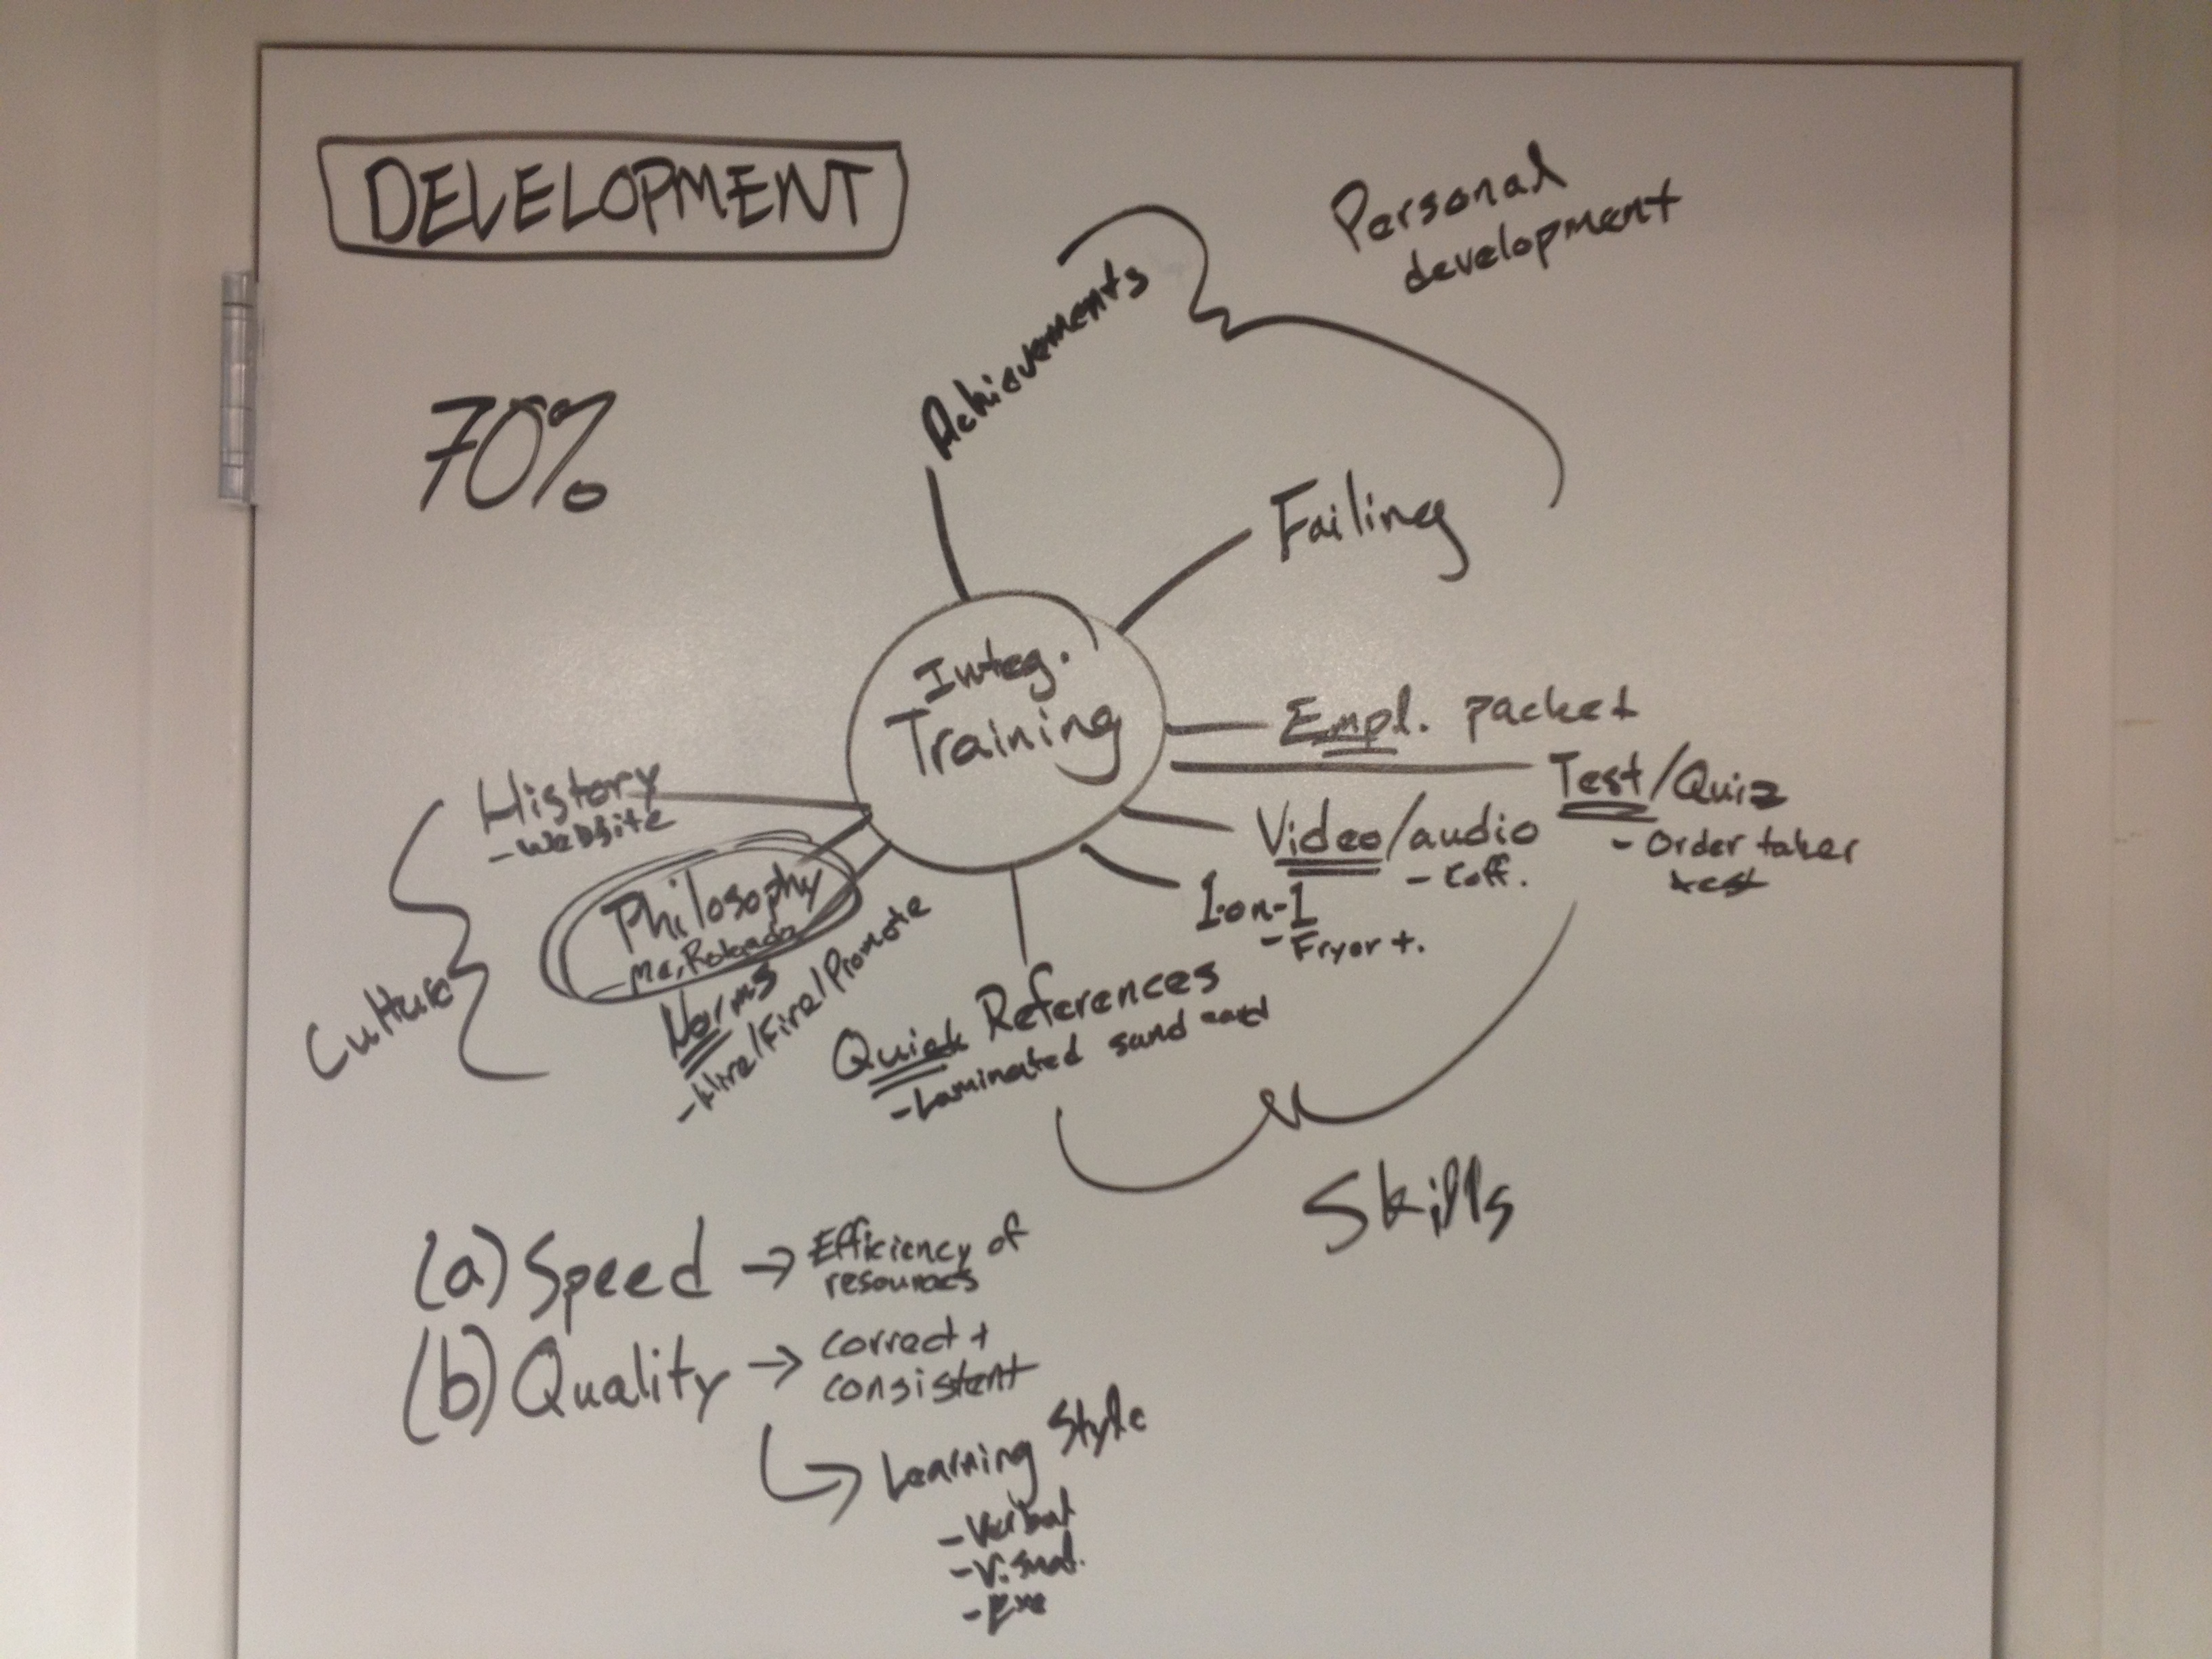 DEVELOPMENT
70%
Personal
development
Achievements
Failing
Integ.
Training
Empl. packet
Test/Quiz
- Order taker
test
Video/audio
- Coff.
1-on-1
- Fryer +.
Quick References
- Laminated sand card
Skills
History
- Website
Philosophy
- Me,
Norms
- Hire/Fire/Promote
Culture
(a) Speed → Efficiency of
resources
(b) Quality → correct +
consistent
Learning Style
- Verbal
- Visual.
- Exe